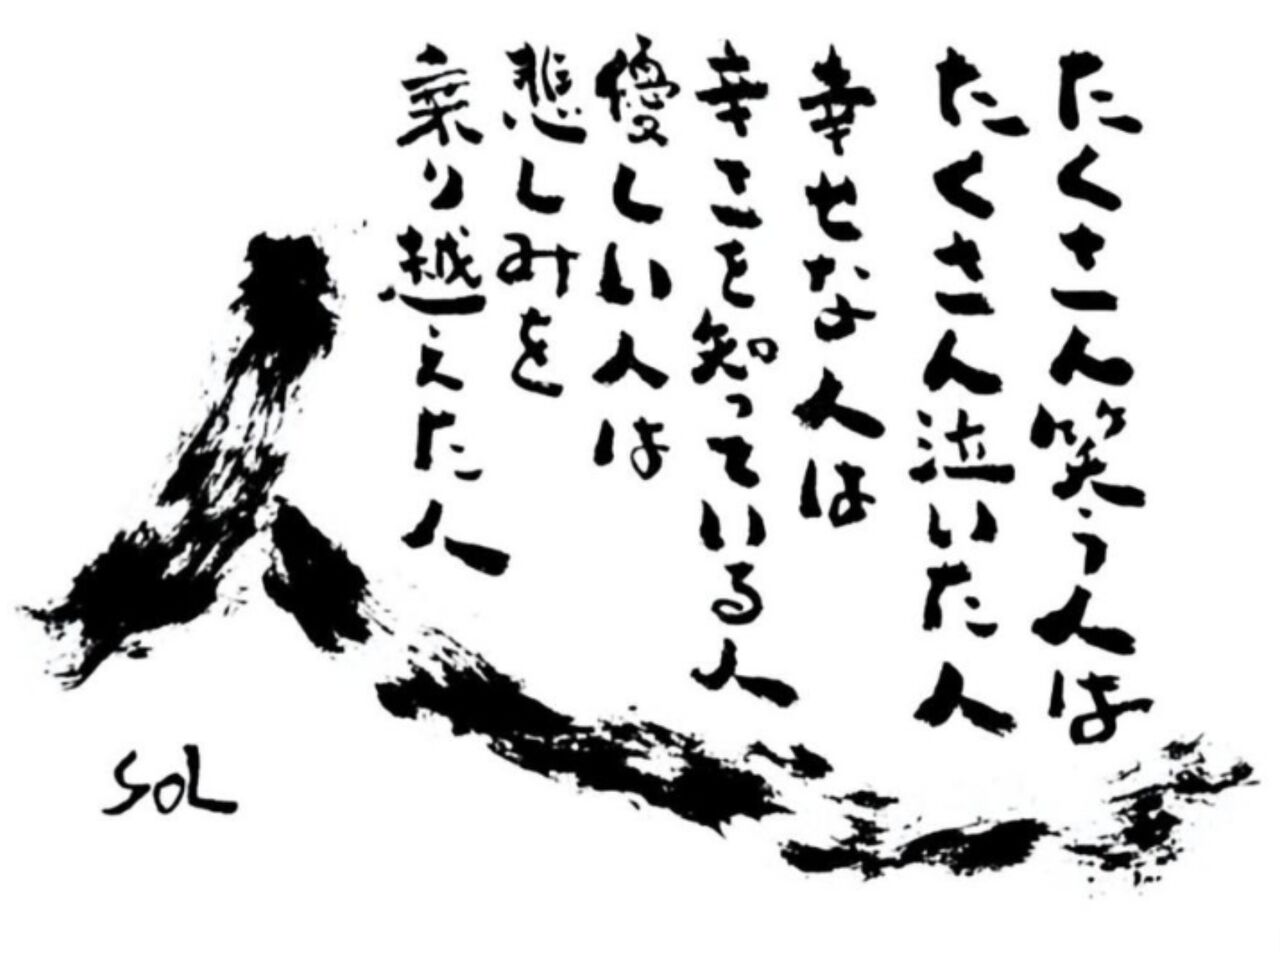 たくさん笑う人は
たくさん泣いた人
幸せな人は
辛さを知っている人
優しい人は
悲しみを
乗り越えた人
人
SOL